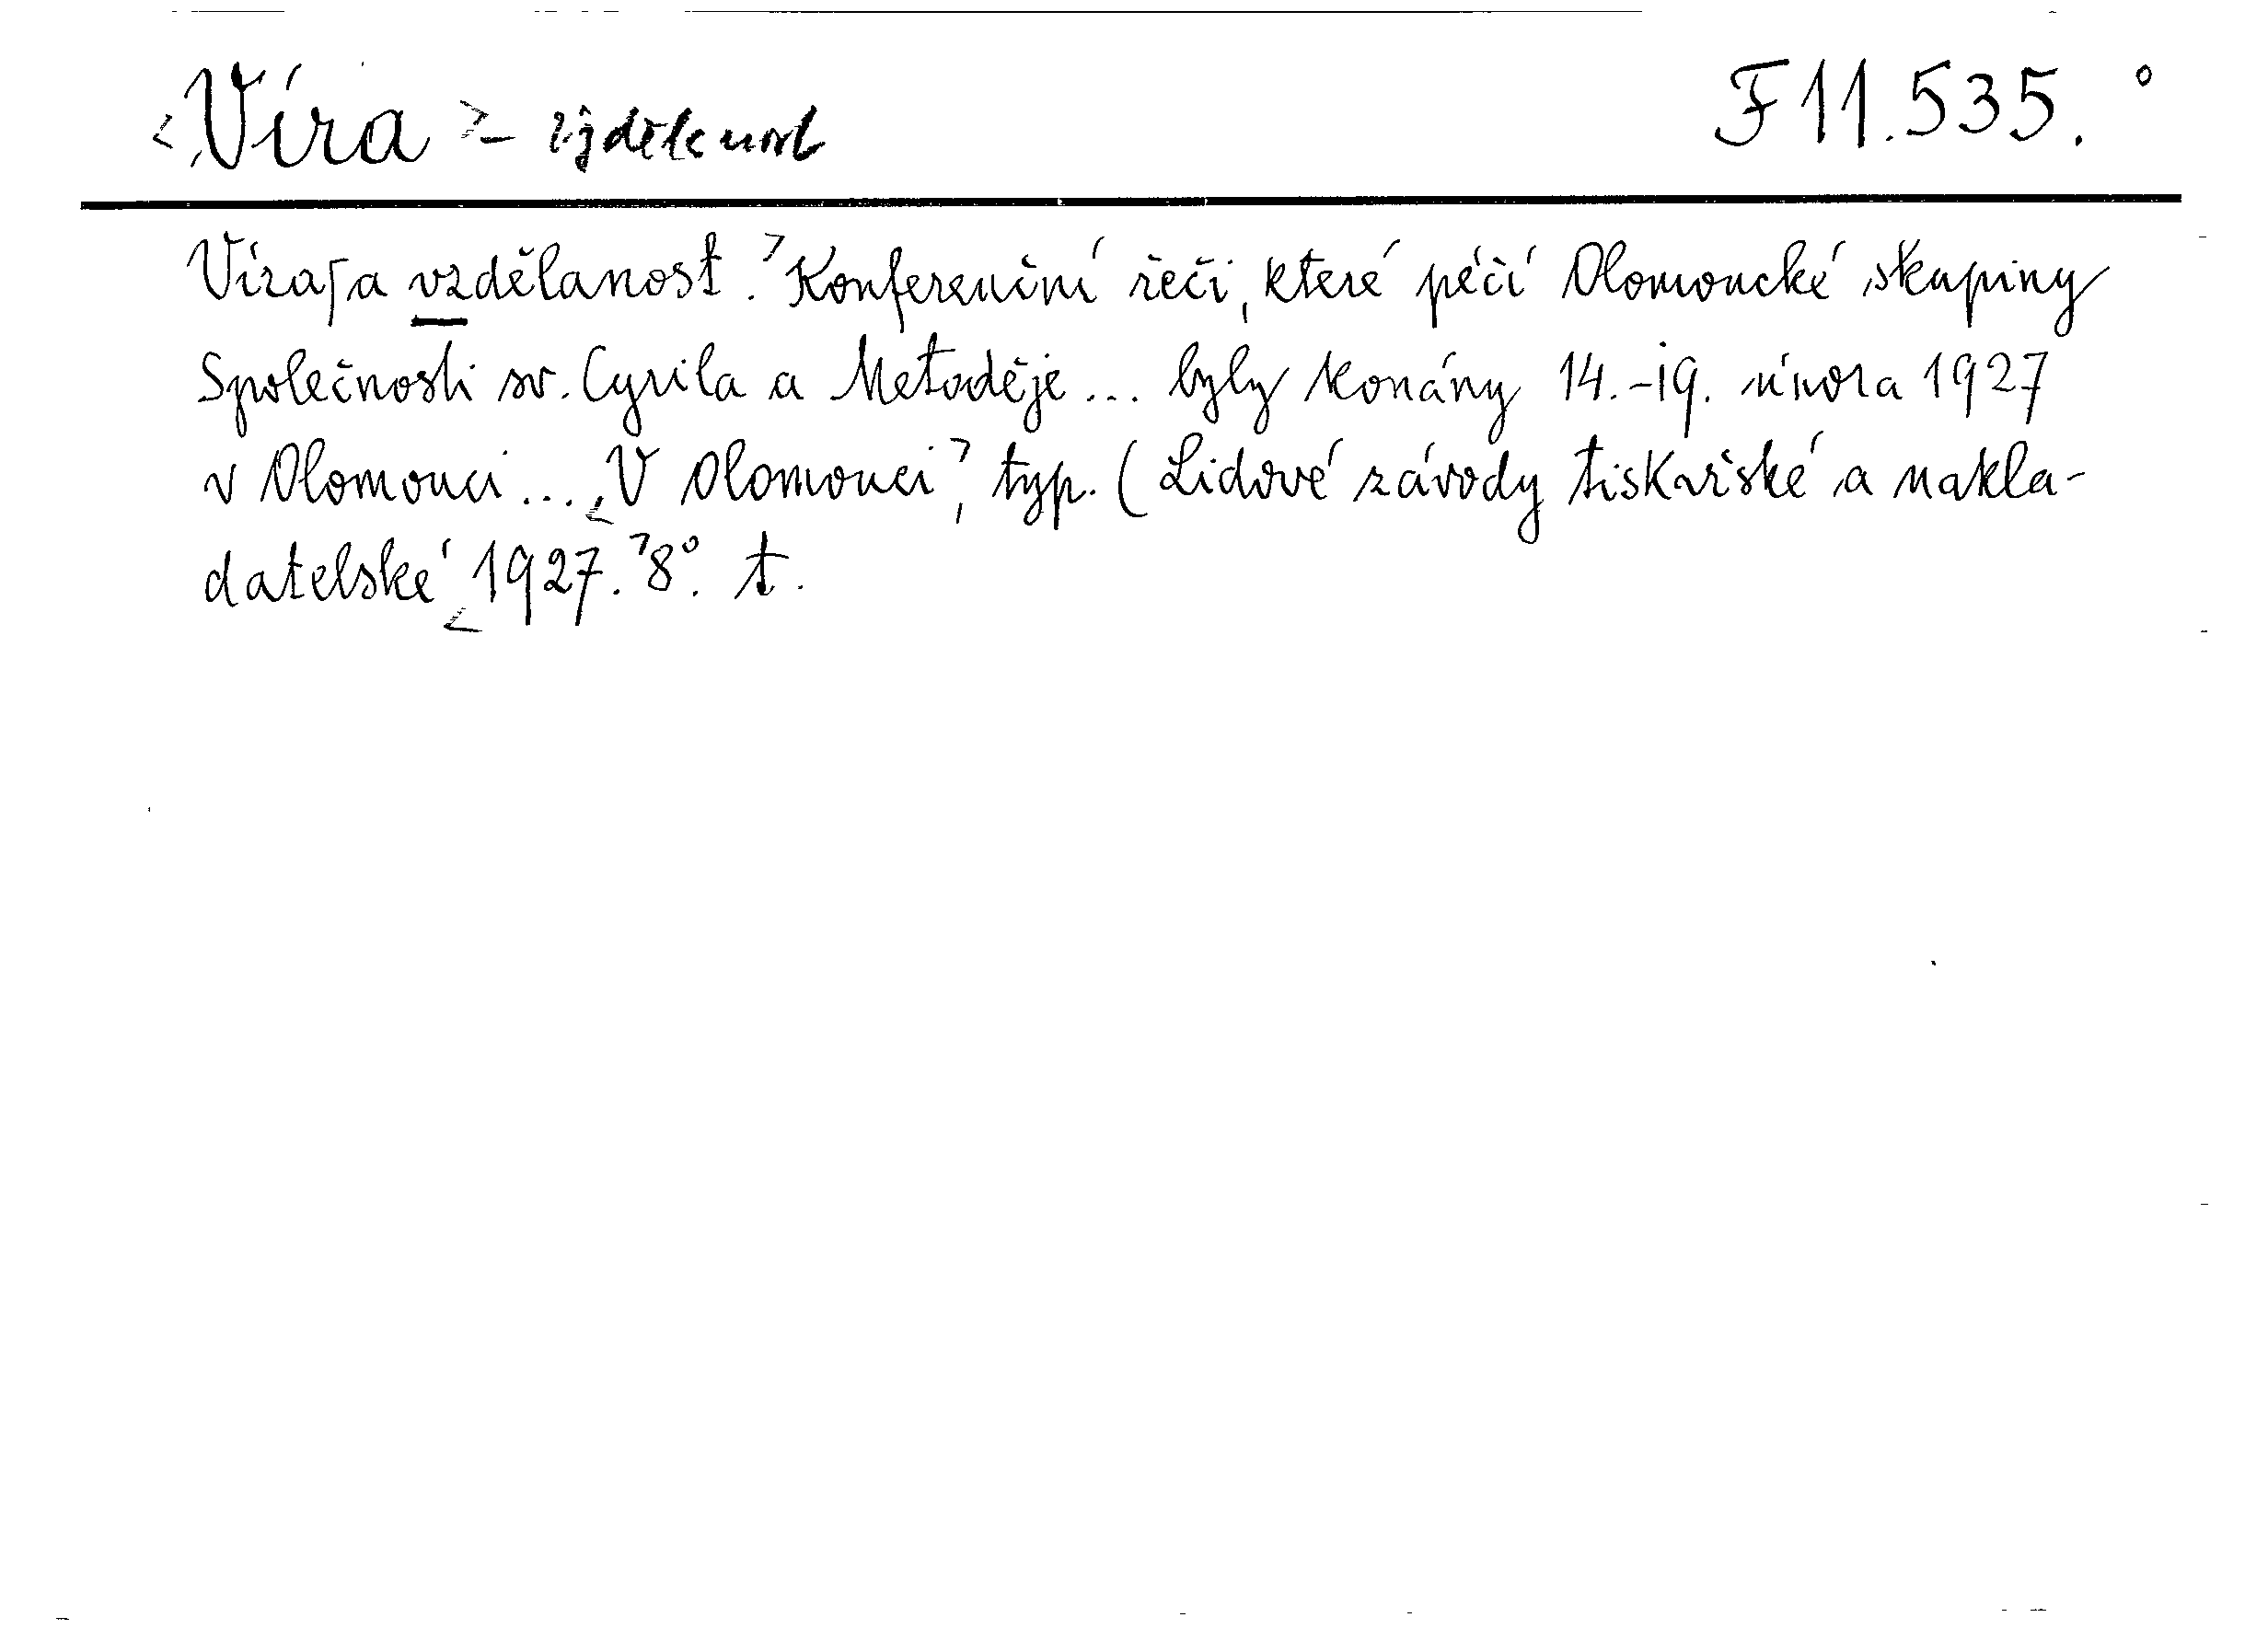 Víra - vzdělanost F 11.535.
Víra a vzdělanost. Konferenční řeči, které péčí Olomoucké skupiny
Společnosti sv. Cyrila a Metoděje ... byly konány 14.-19. února 1927
v Olomouci ... V Olomouci, typ. (Lidové závody tiskařské a nakla-
datelské 1927. 8°. t.